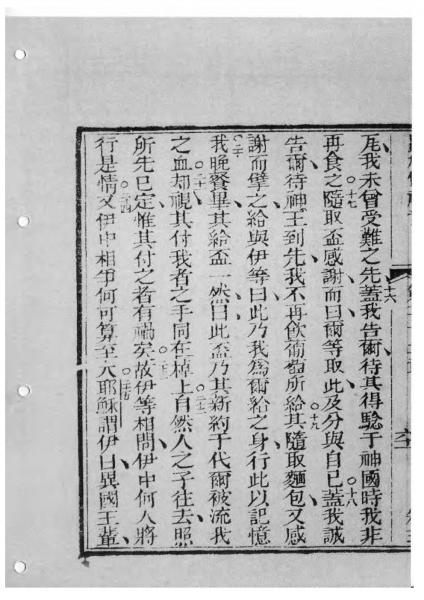 尾我未曾受難之先蓋我告爾待其得驗于神國時我非
再食之隨取盃感謝而曰爾等取此及分與自已蓋我誠
告爾待神王到先我不再飲葡萄所給其隨取麵包又感
謝而擘之給與伊等曰此乃我為爾給之身行此以記憶
我晚餐畢其給盃一然曰此盃乃其新約于代爾被流我
之血却視其付我者之手同在棹上自然人之子往去照
所先已定惟其付之者有禍矣故伊等相問伊中何人將
行是情又伊中相爭何可算至大耶穌謂伊曰異國王輩